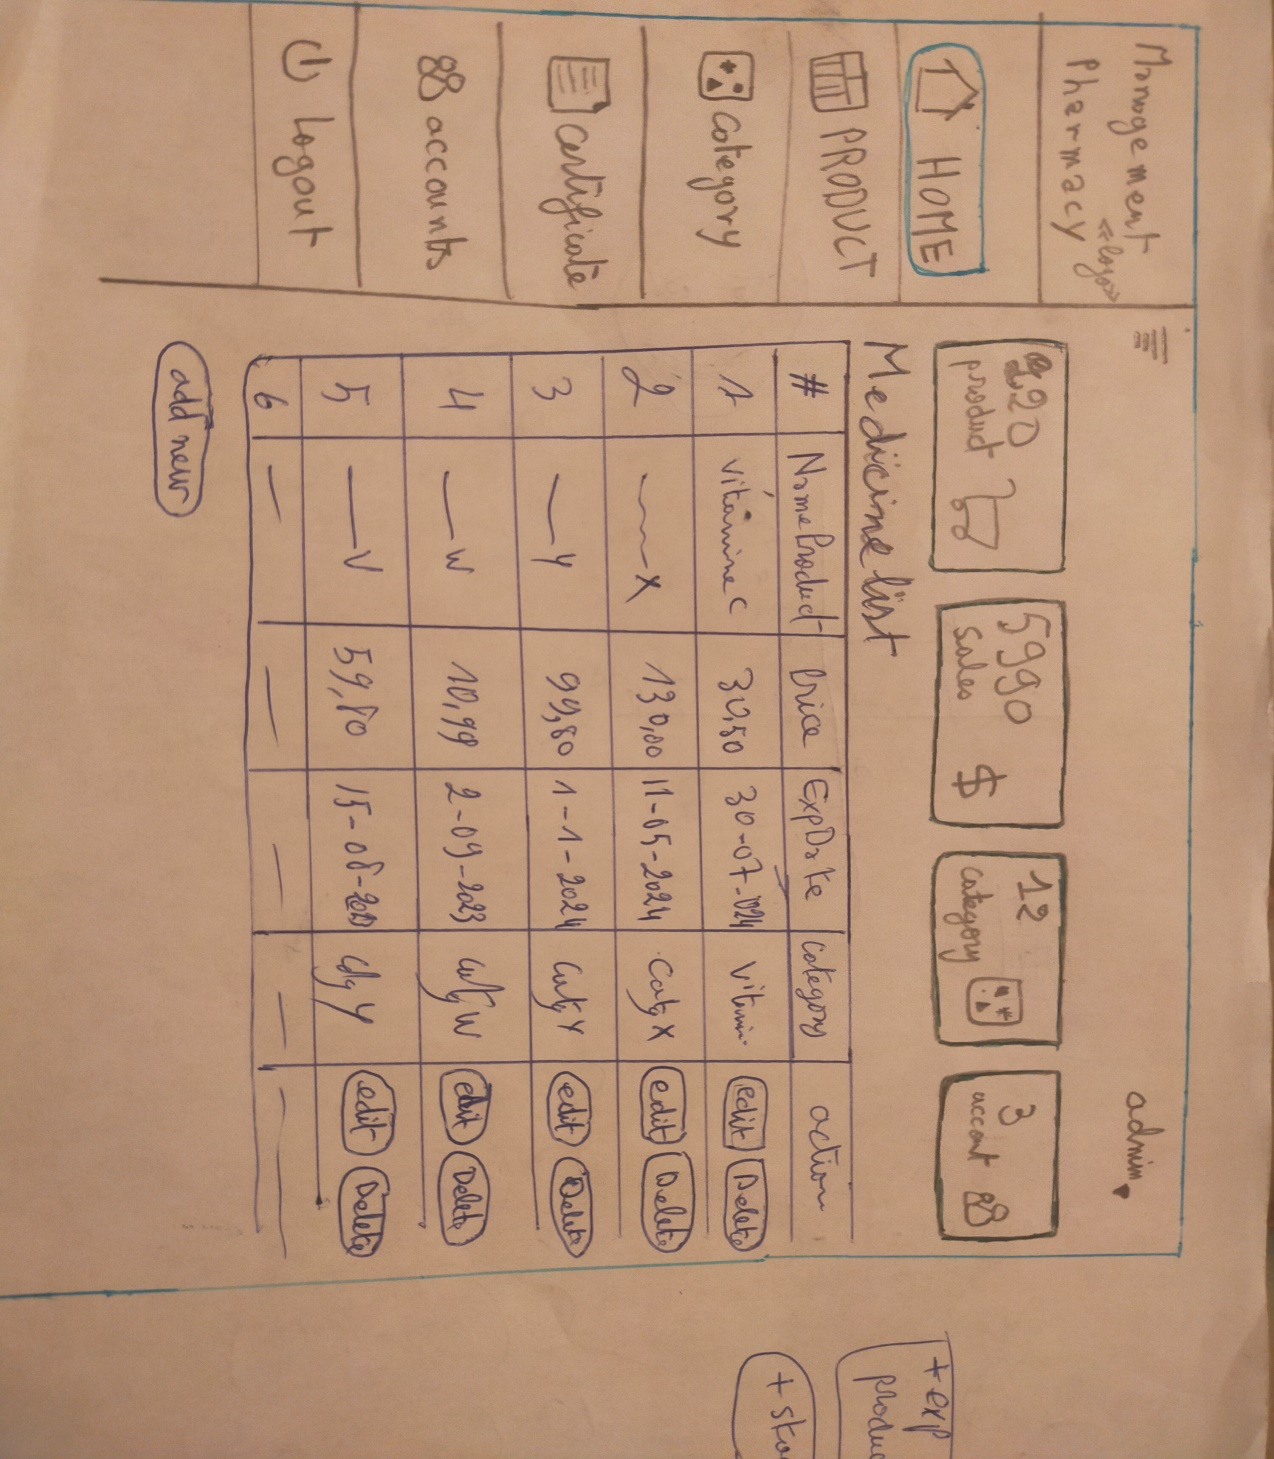 Management
Pharmacy
«logo»
HOME
PRODUCT
category
certificate
accounts
Logout
admin
220
product
5990
sales $
12
category
3
accont
Medicine list
# NameProduct Price ExpDate category action
1 vitamine c 30,50 30-07-2024 vitamin edit Delete
2 X 130,00 11-05-2024 Catg X edit Delete
3 Y 99,80 1-1-2024 Catg Y edit Delete
4 W 10,99 2-09-2023 Catg W edit Delete
5 V 59,80 15-08-2023 Catg Y edit Delete
6
add new
+ exp
produc
+ sto